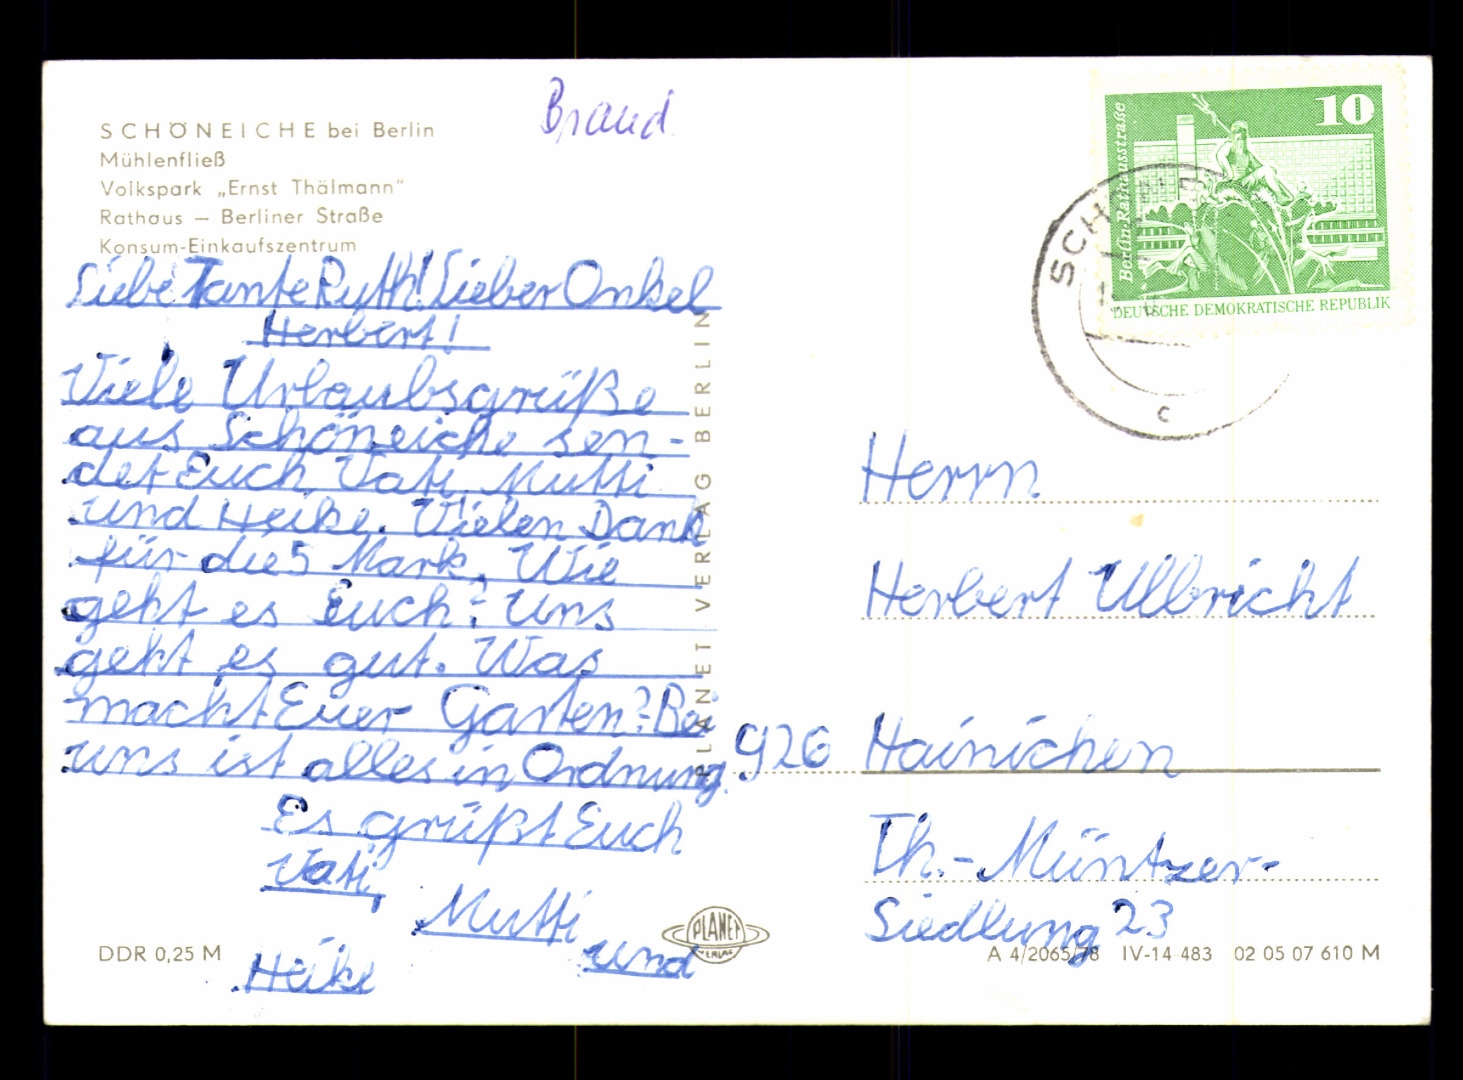 SCHÖNEICHE bei Berlin
Mühlenfließ
Volkspark „Ernst Thälmann“
Rathaus – Berliner Straße
Konsum-Einkaufszentrum
Brand
Liebe Tante Ruth! Lieber Onkel
Herbert!
Viele Urlaubsgrüße
aus Schöneiche sen-
det Euch Vati, Mutti
und Heike. Vielen Dank
für die 5 Mark. Wie
geht es Euch? Uns
geht es gut. Was
macht Euer Garten? Bei
uns ist alles in Ordnung.
Es grüßt Euch
Vati,
Mutti
und
Heike
DDR 0,25 M
PLANET VERLAG BERLIN
PLANET
VERLAG
10
Berlin-Rathausstraße
DEUTSCHE DEMOKRATISCHE REPUBLIK
c
Herrn
Herbert Ullbricht
926 Hainichen
Th.-Müntzer-
Siedlung 23
A 4/2065/78 IV-14-483 02 05 07 610 M